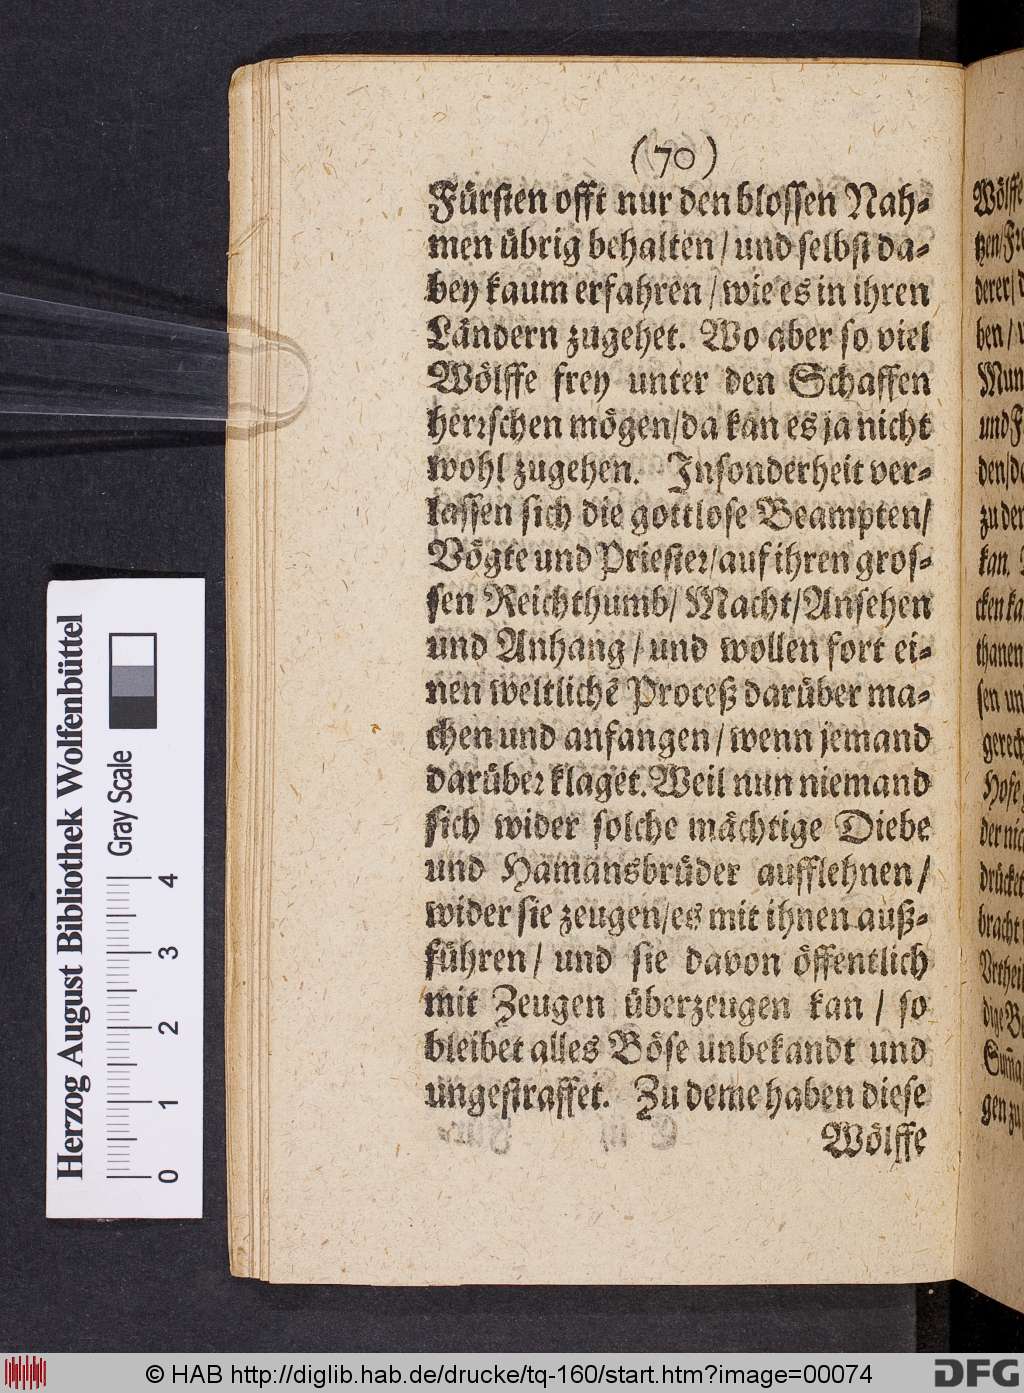 (70)
Fürsten offt nur den blossen Nah-
men übrig behalten/ und selbst da-
bey kaum erfahren/ wie es in ihren
Ländern zugehet. Wo aber so viel
Wölffe frey unter den Schaffen
herrschen mögen/da kan es ja nicht
wohl zugehen. Insonderheit ver-
lassen sich die gottlose Beampten/
Vögte und Priester/auf ihren gros-
sen Reichthumb/ Macht/Ansehen
und Anhang/ und wollen fort ei-
nen weltlichē Proceß darüber ma-
chen und anfangen/ wenn jemand
darüber klaget. Weil nun niemand
sich wider solche mächtige Diebe
und Hamansbrüder aufflehnen/
wider sie zeugen/es mit ihnen auß-
führen/ und sie davon öffentlich
mit Zeugen überzeugen kan/ so
bleibet alles Böse unbekandt und
ungestraffet. Zu deme haben diese
Wölffe
Wölffe
derer/
ben/
und F
zu der
kan.
cken ka
thanen
sen un
gerech
Hofe
der nic
drücket
bracht
Vrthei
dige B
gen zu
Herzog August Bibliothek Wolfenbüttel
Gray Scale
0 1 2 3 4
© HAB http://diglib.hab.de/drucke/tq-160/start.htm?image=00074
DFG